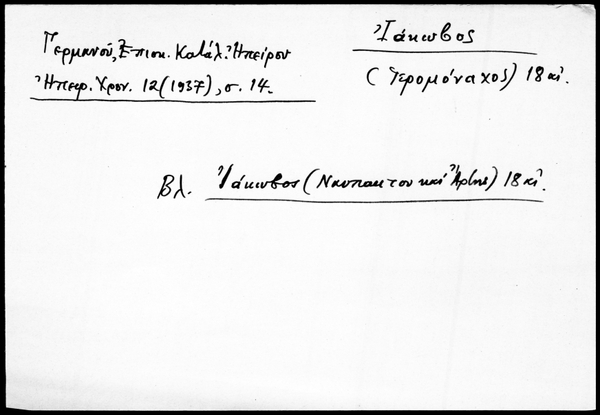 Γερμανού, Επισκ. Κατάλ. Ἠπείρου
Ἠπειρ. Χρον. 12 (1937), σ. 14.
Ἰάκωβος
(Ἱερομόναχος) 18 αἰ.
Βλ. Ἰάκωβος (Ναυπάκτου καὶ Ἄρτης) 18 αἰ.